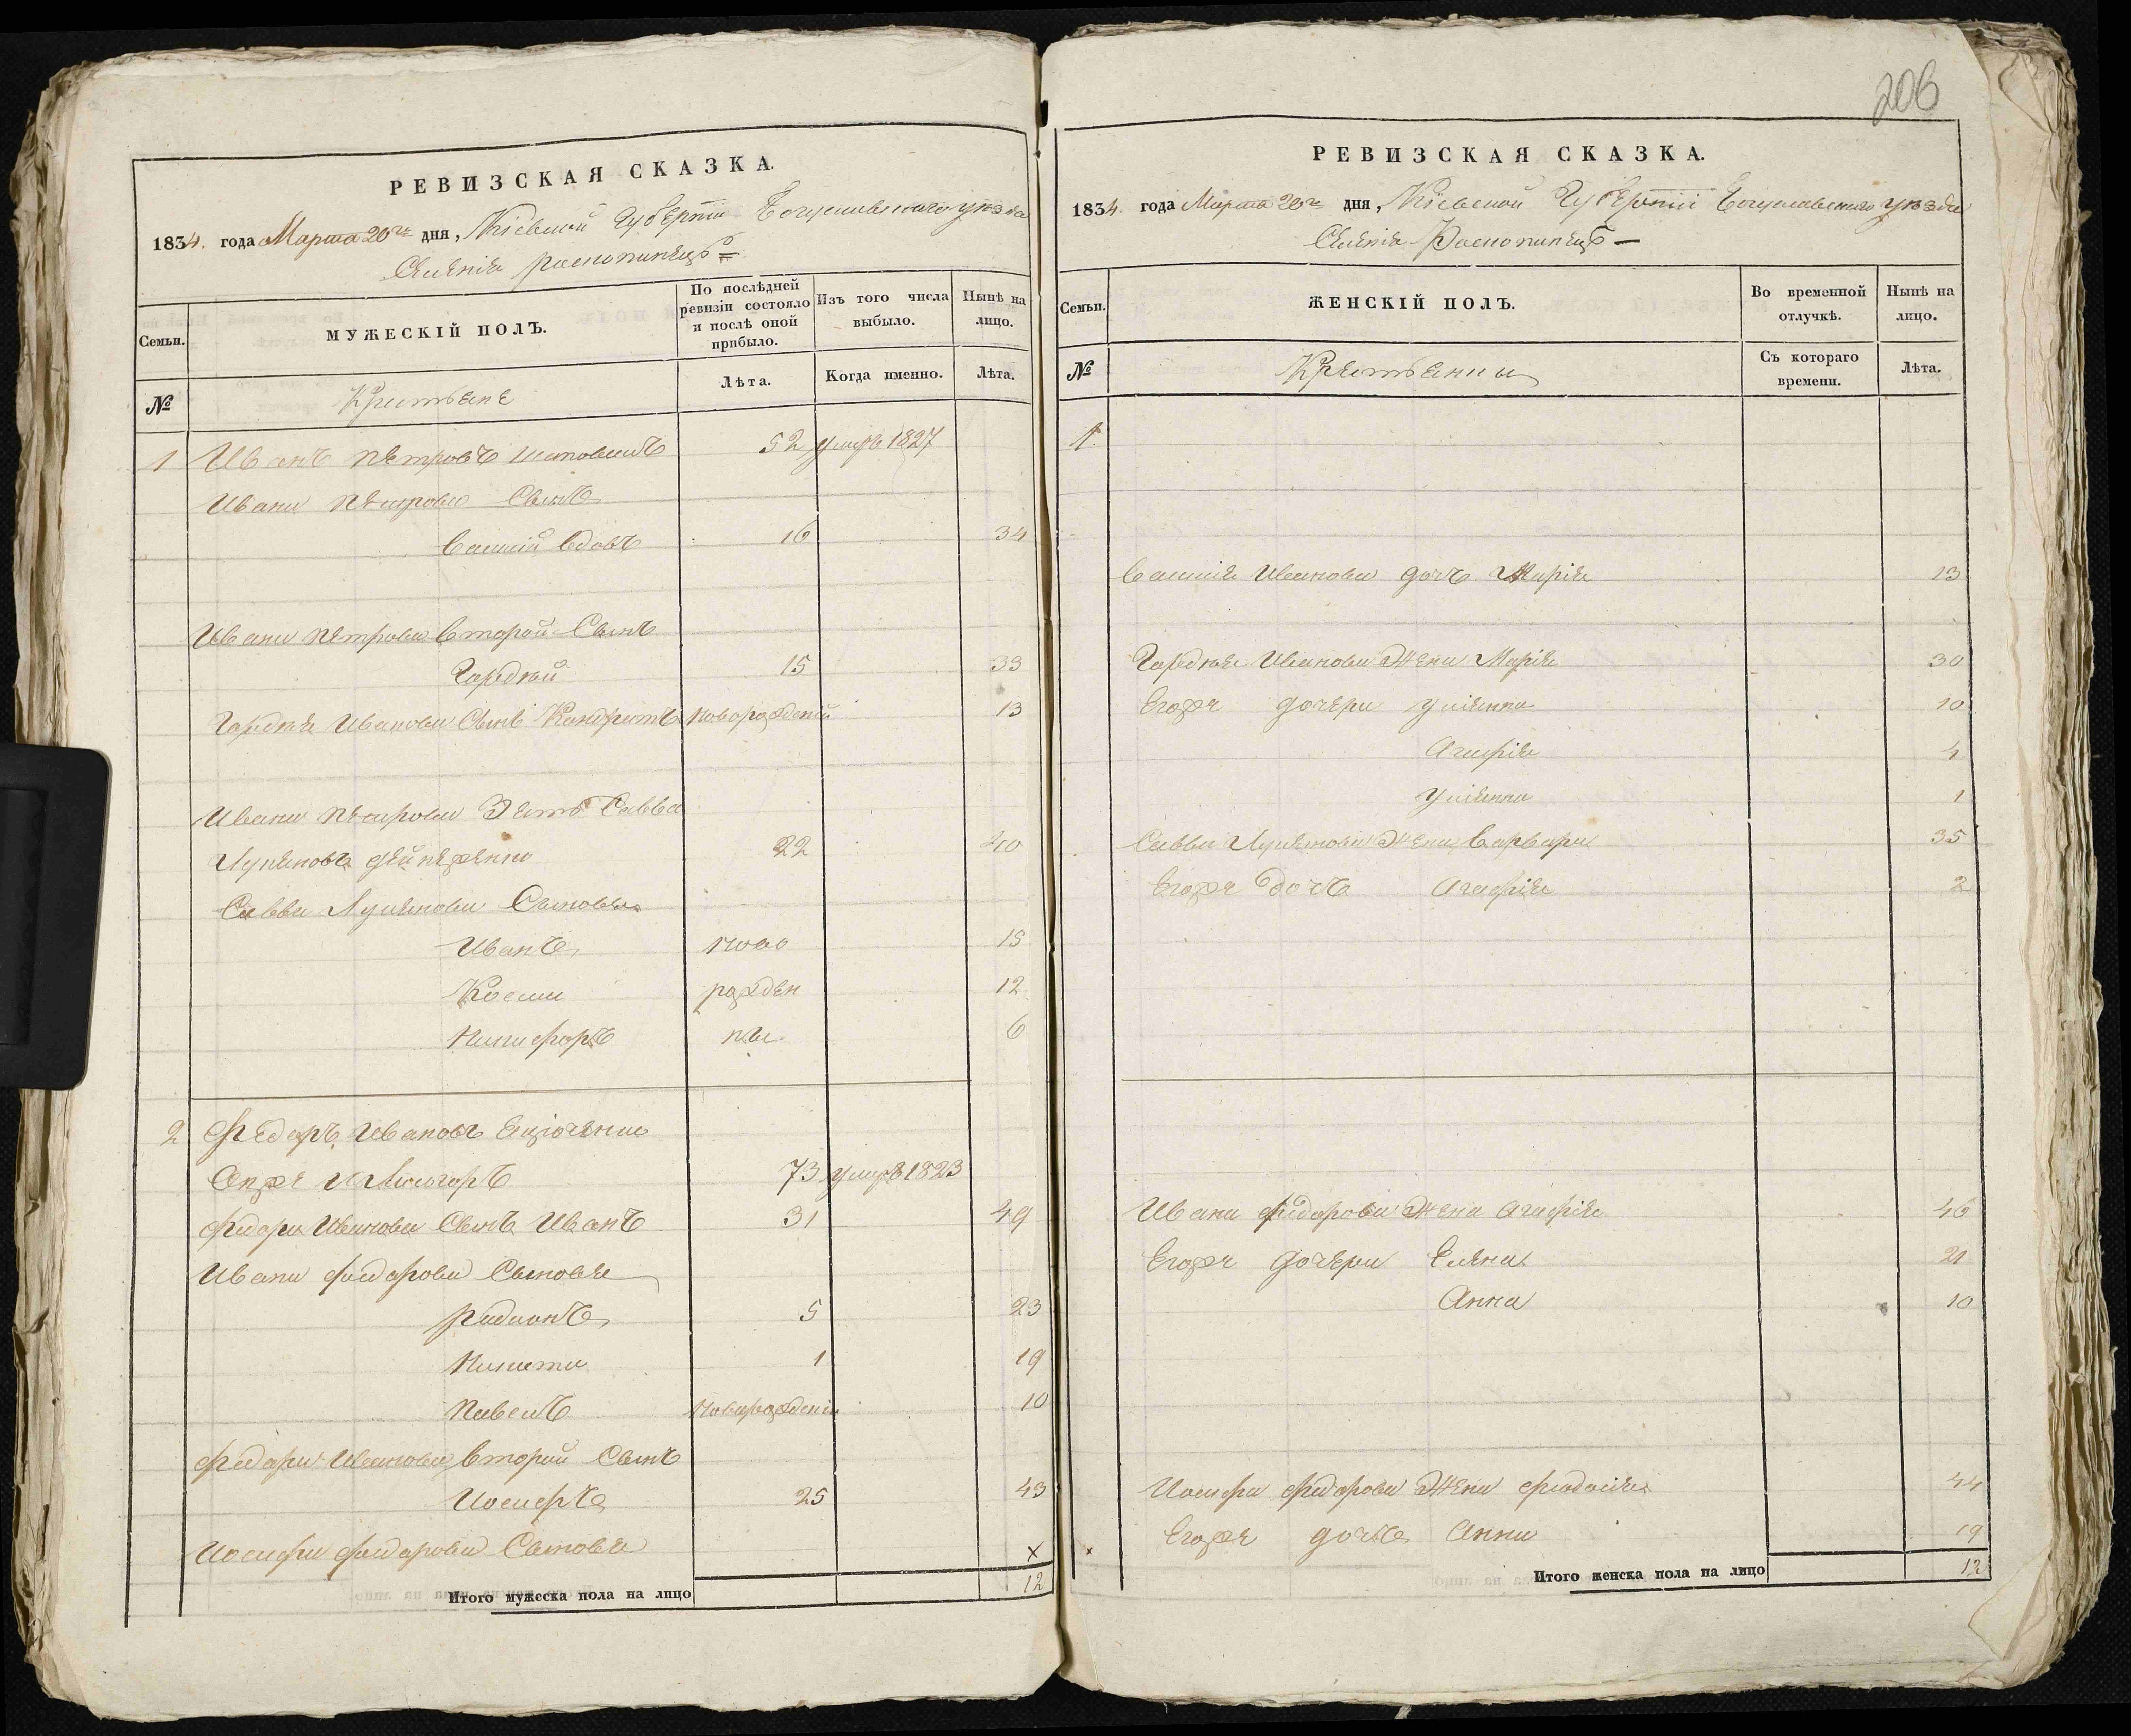 206
РЕВИЗСКАЯ СКАЗКА.
1834. года Марта 20го дня, Кіевской Губерніи Богуславского уѣзда
Селенія Роскопинецъ
Семьи.
МУЖЕСКІЙ ПОЛЪ.
По послѣдней ревизіи состояло и послѣ оной прибыло.
Изъ того числа выбыло.
Нынѣ на лицо.
№
Крестьяне
Лѣта.
Когда именно.
Лѣта.
1 Иванъ Петровъ 52 умръ 1827
Ивана Петрова Сынъ
Василій вдовъ 16 34
Ивана Петрова второй Сынъ
Гордѣй 15 33
Гордѣя Иванова Сынъ Кондратъ новорожденый 13
Ивана Петрова Зять Савва
Лукяновъ 22 40
Саввы Лукянова Сыновья
Иванъ ново 15
Косма рожден 12
Никифоръ ны 6
2 Федоръ Ивановъ
Онже и 73 умръ 1823
Федора Иванова Сынъ Иванъ 31 49
Ивана Федорова Сыновья
Радионъ 5 23
Никита 1 19
Павелъ Новорожденій 10
Федора Иванова второй Сынъ
Иосифъ 25 43
Иосифа Федорова Сыновья х
Итого мужеска пола на лицо 12
РЕВИЗСКАЯ СКАЗКА.
1834. года Марта 20го дня, Кіевской Губерніи Богуславского уѣзда
Селенія Роскопинецъ
Семьи.
ЖЕНСКІЙ ПОЛЪ.
Во временной отлучкѣ.
Нынѣ на лицо.
№
Крестьянки
Съ котораго времени.
Лѣта.
1.
Василія Иванова дочъ Марія 13
Гордѣя Иванова Жена Марія 30
Егоже дочери Уліянна 10
Агафія 4
Уліянна 1
Саввы Лукянова Жена Варвара 35
Егоже Дочъ Агафія 2
Ивана Федорова Жена Агафія 46
Егоже дочери Елена 21
Анна 10
Иосифа Федорова Жена Феодосія 44
х Егоже дочъ Анна 19
Итого женска пола на лицо 12